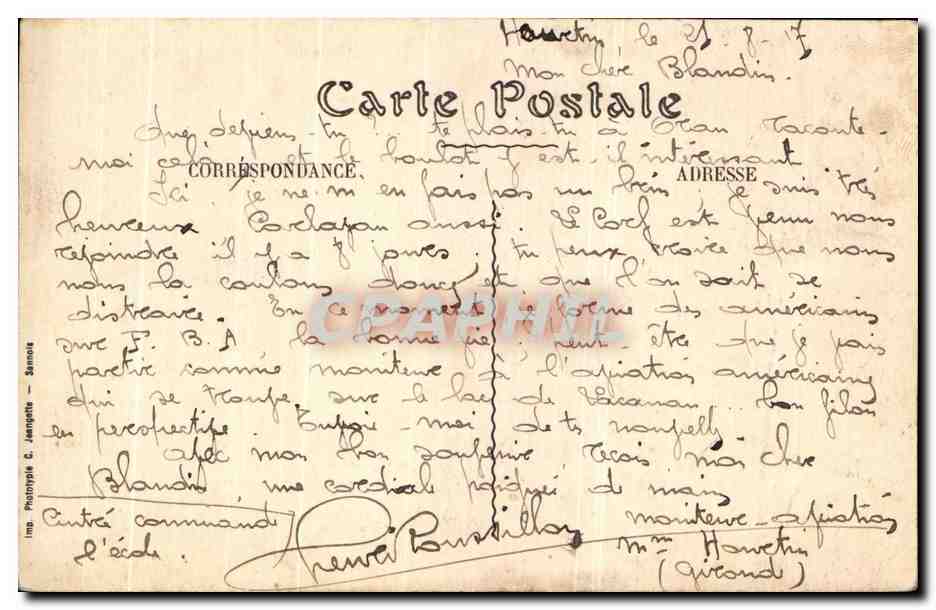 Hourtin le 21-8-17
Mon cher Blandin.
Carte Postale
Que deviens-tu? te plais-tu à Oran raconte-
moi cela et le boulot y est-il intéressant
CORRESPONDANCE
ADRESSE
Ici je ne m'en fais pas un brin je suis très
heureux aussi. Le est venu nous
rejoindre il y a 8 jours. tu peux croire que nous
nous la coulons douce et que l'on sait se
distraire. En ce moment je forme des américains
sur F.B.A la bonne vie. Peut être que je vais
partir comme moniteur à l'aviation américaine
qui se trouve sur le lac de Lacanau. bon filon
en perspective. Envoie-moi de tes nouvelles
avec mon bon souvenir reçois mon cher
Blandin une cordiale poignée de main
moniteur-aviation
Centre commande
l'école.
Henri
Hourtin
(Girond)
Imp. Phototypie C. Jeangette - Sannois
CPAPHIL